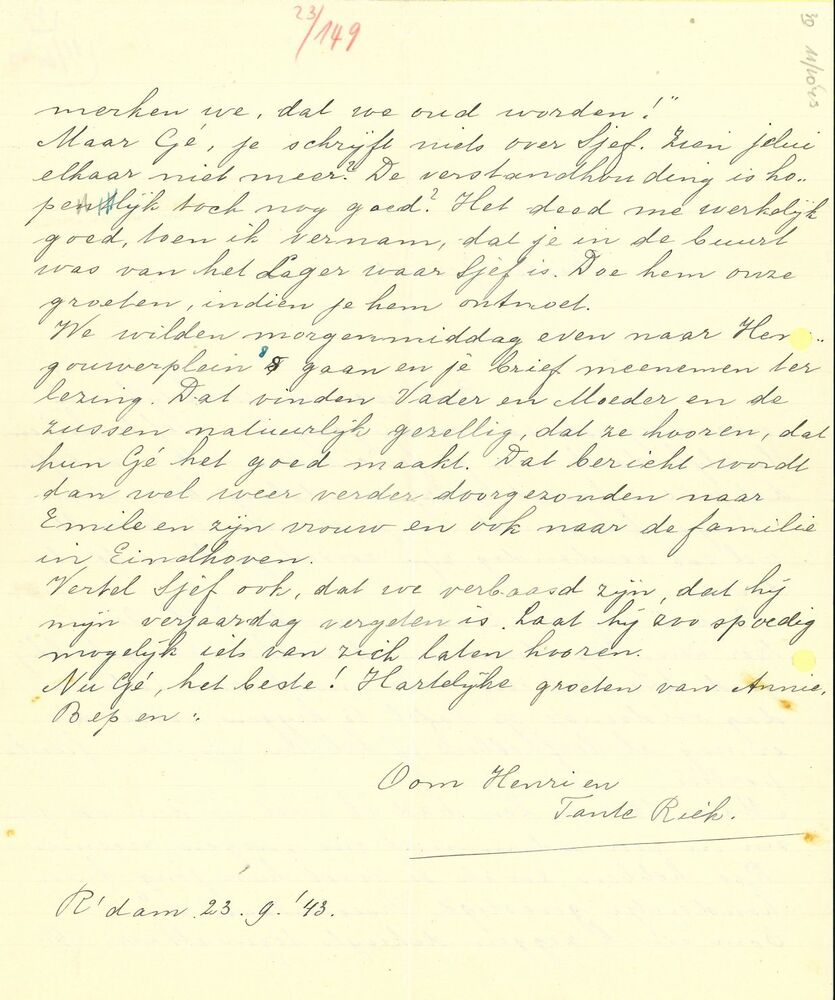 23/149
30 11/10 '43
merken we, dat we oud worden!"
Maar Gé, je schrijft niets over Sjef. Zien jelui
elkaar niet meer? De verstandhouding is ho„
penlijk toch nog goed? Het deed me werkelijk
goed, toen ik vernam, dat je in de buurt
was van het Lager waar Sjef is. Doe hem onze
groeten, indien je hem ontmoet.
We wilden morgenmiddag even naar Hen„
gouwerplein 8 gaan en je brief meenemen ter
lezing. Dat vinden Vader en Moeder en de
zussen natuurlijk gezellig, dat ze hooren, dat
hun Gé het goed maakt. Dat bericht wordt
dan wel weer verder doorgezonden naar
Emile en zijn vrouw en ook naar de familie
in Eindhoven.
Vertel Sjèf ook, dat we verbaasd zijn, dat hij
mijn verjaardag vergeten is. Laat hij zoo spoedig
mogelijk iets van zich laten hooren.
Nu Gé, het beste! Hartelijke groeten van Annie,
Bep en:
Oom Henri en
Tante Riek.
R'dam 23. 9. '43.